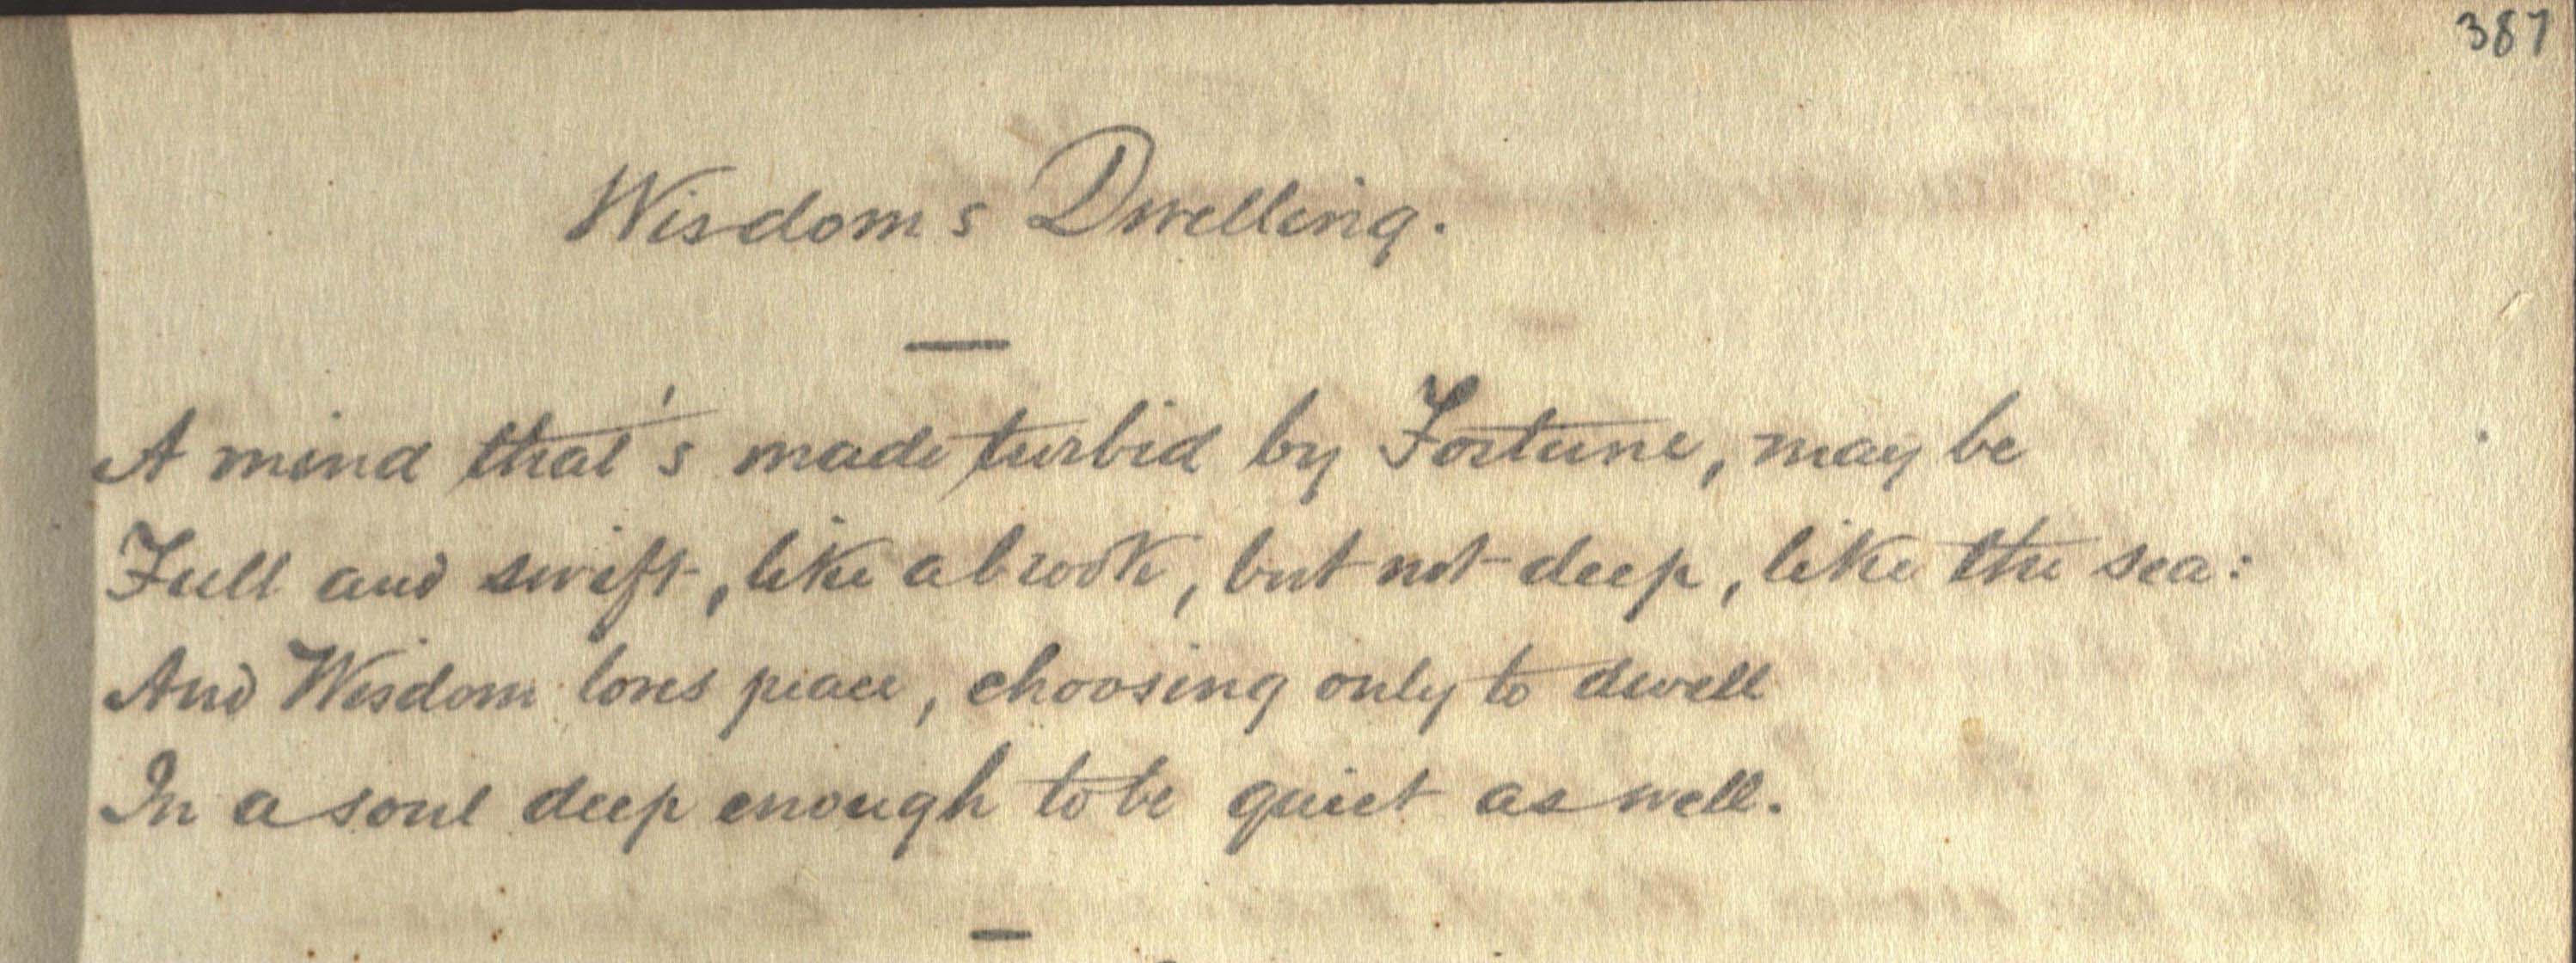 387
Wisdoms Dwelling.
A mind that's made turbid by Fortune, may be
Full and swift, like a brook, but not deep, like the sea:
And Wisdom loves peace, choosing only to dwell
In a soul deep enough to be quiet as well.